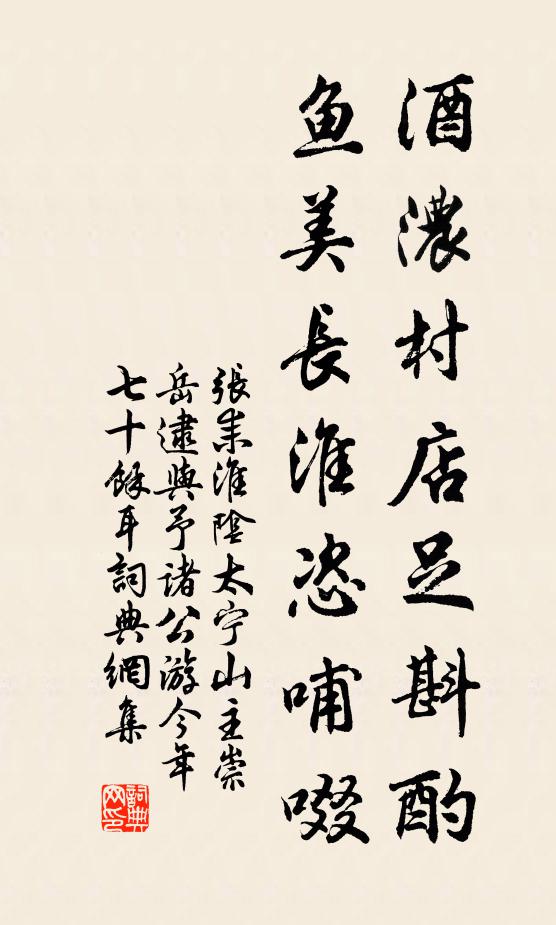 酒濃村店足斟酌
鱼美長淮恣哺啜
張耒淮陰太宁山主崇
岳逮與予诸公游今年
七十餘耳詞典網集
詞典網印